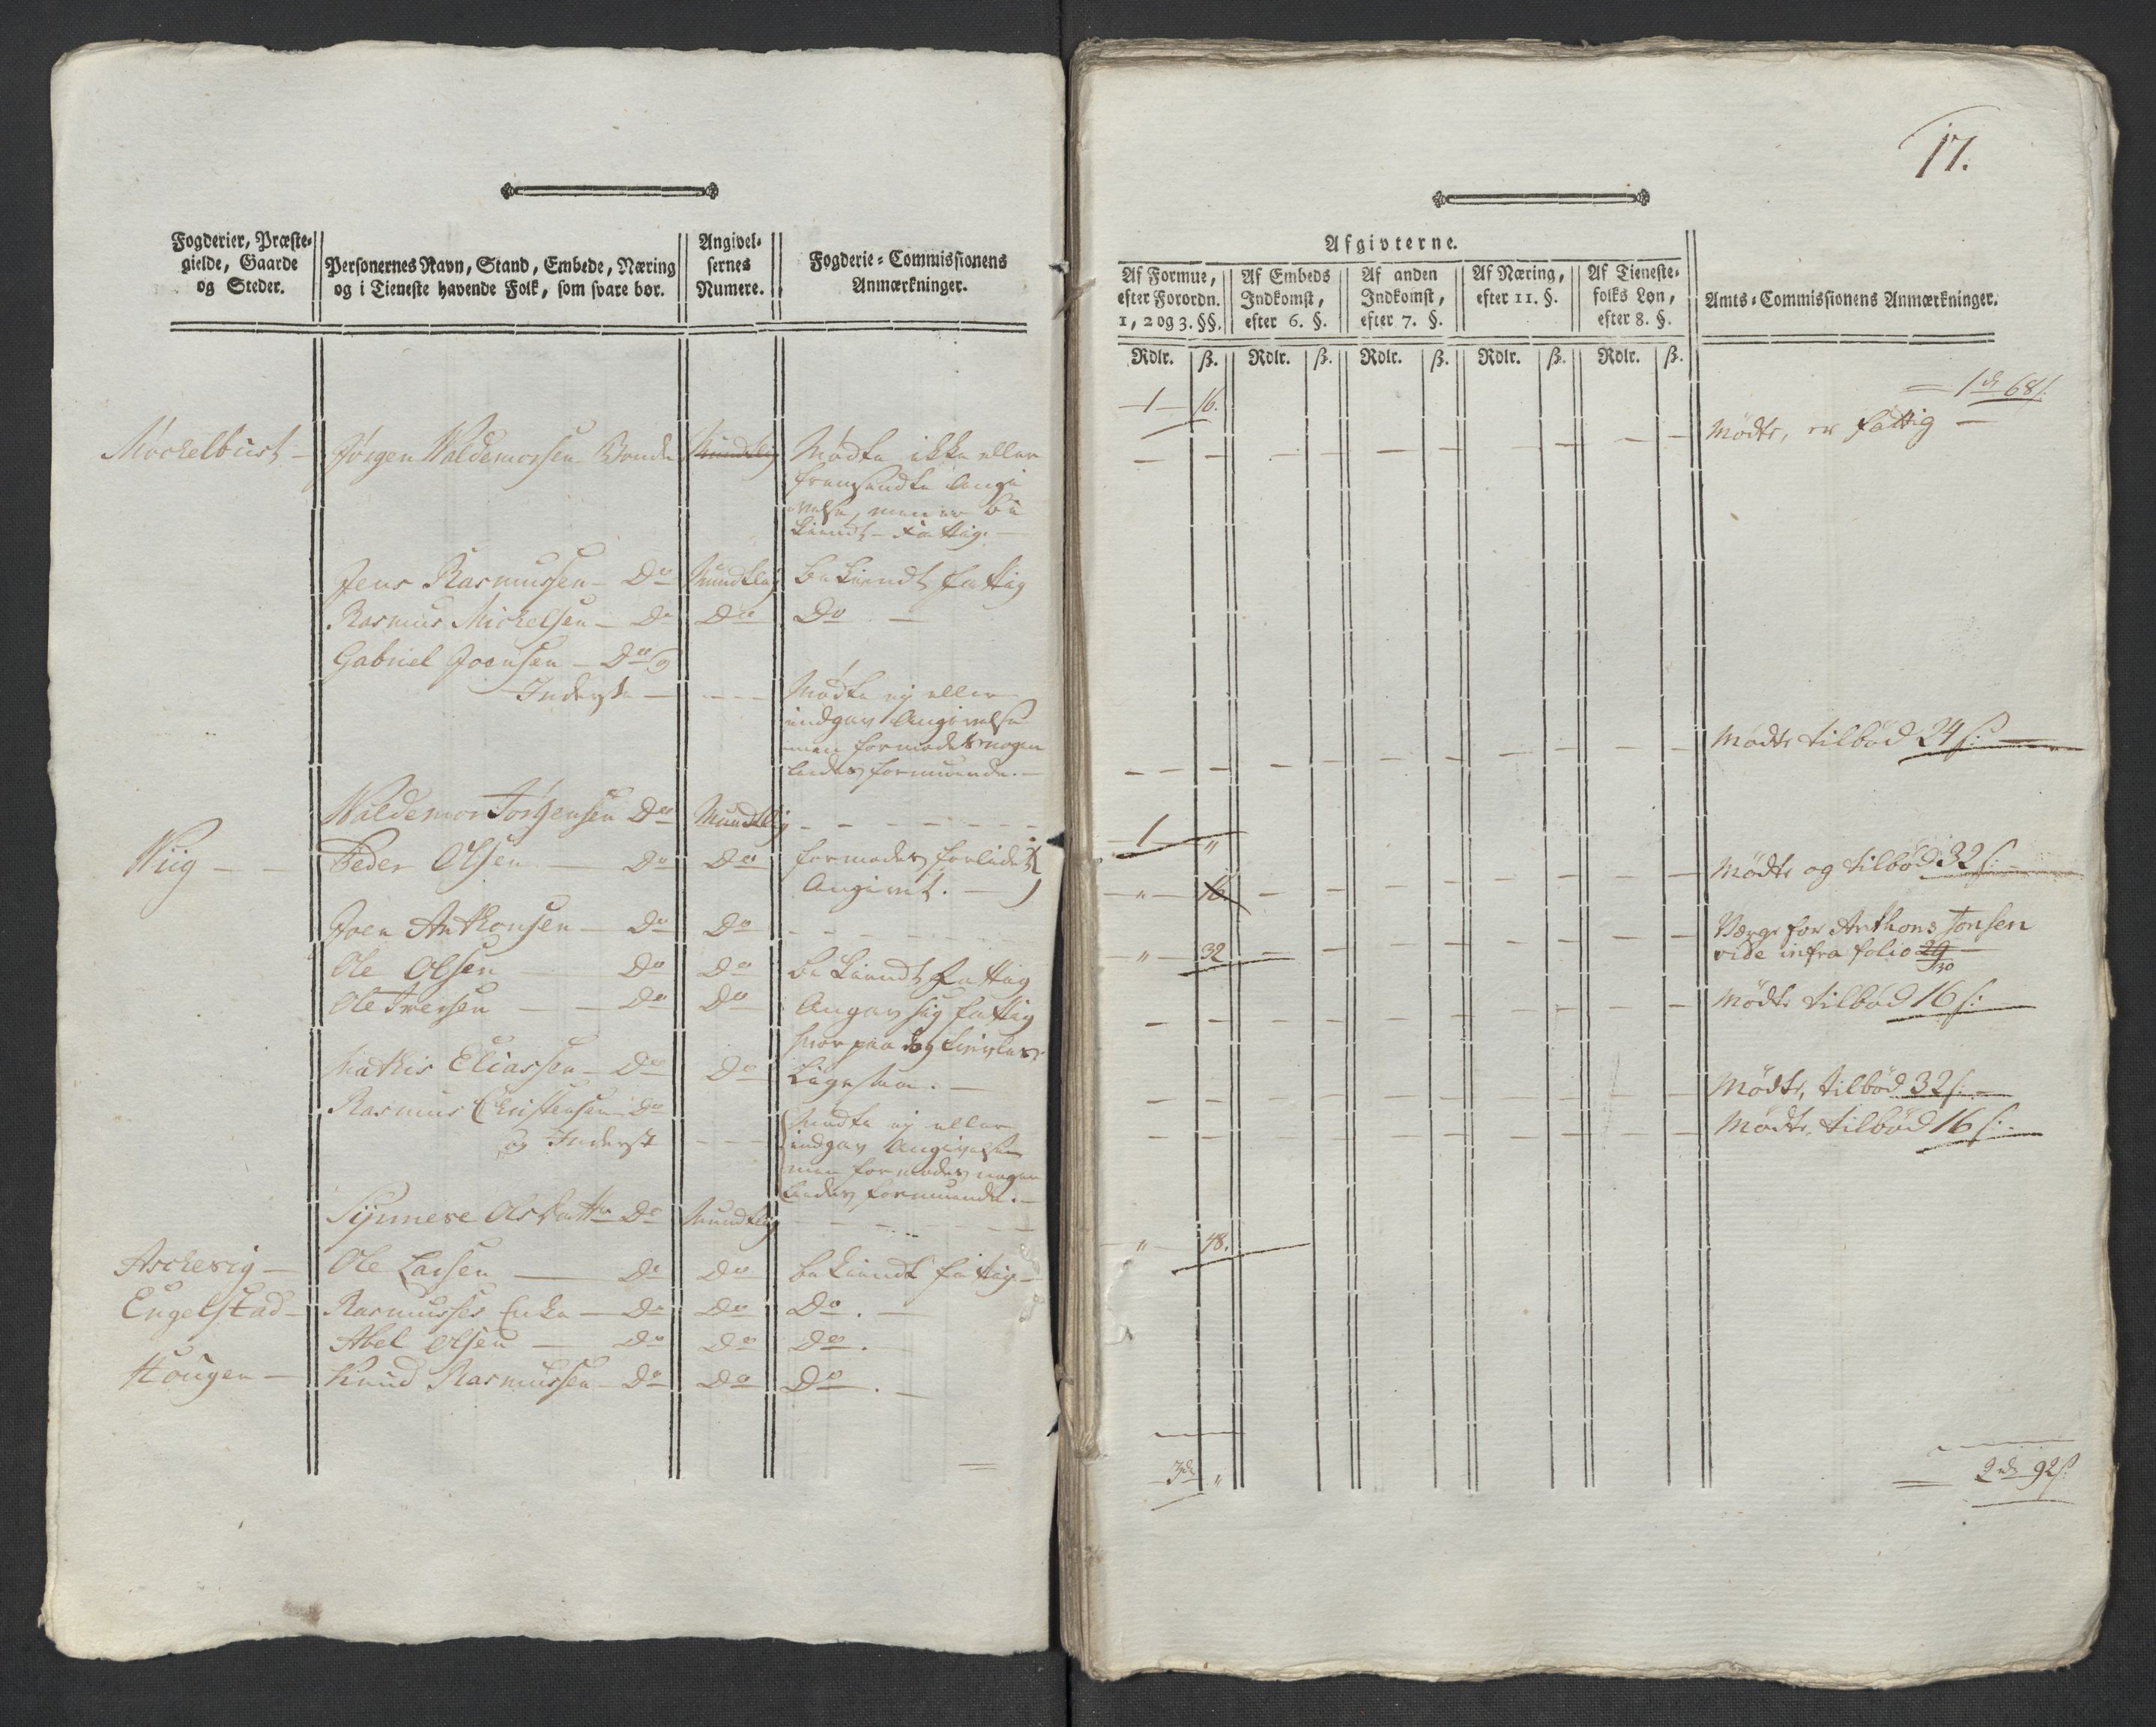 Fogderier, Præste-
gielde, Gaarde
og Steder.
Personernes Navn, Stand, Embede, Næring
og i Tieneste havende Folk, som svare bør.
Angivel-
sernes
Numere.
Fogderie-Commissionens
Anmærkninger.
Mockelbust - Jørgen Waldemorsen Bonde Mundtlig Mødte ikke eller
fremsendte Angi
velse, men er be
kiendt Fattig. -
Jens Rasmussen - Do Mundtlig bekiendt fattig
Rasmus Mickelsen - Do Do Do -
Gabriel Joensen - Do og
Inderste - - - - Mødte ej eller
indgav Angivelse
men formodes nogen
ledes formuende. -
Waldemor Jørgensen Do Mundtlig - - - - - -
Wiig - - Peder Olsen - Do Do formodes forlidet
Angivet. -
Joen Anthonsen - Do Do - - - - - -
Ole Olsen Do Do bekiendt fattig
Ole Iversen - - Do Do Angav sig fattig
hvorpaa
Mathis Eliassen - Do Do Ligesaa. -
Rasmus Christensen Do
og Inderst - - - Mødte ej eller
indgav Angivelse
men formodes nogen
ledes formuende. -
Synneve Olsdatter Do Mundtlig - - - - - -
Aschevig - Ole Larsen - Do Do bekiendt fattig -
Engelstad - Rasmusses Enke - Do Do Do. -
Abel Olsen - Do Do Do.
Hougen - Knud Rasmussen - Do Do Do. -
17.
Afgivterne.
Af Formue,
efter Forordn.
1, 2 og 3. §§.
Af Embeds
Indkomst,
efter 6. §.
Af anden
Indkomst,
efter 7. §.
Af Næring,
efter 11. §.
Af Tieneste-
folks Løn,
efter 8. §.
Amts-Commissionens Anmærkninger.
Rdlr. ß. Rdlr. ß. Rdlr. ß. Rdlr. ß. Rdlr. ß.
1 - 16. = 1 d 68 ß.
- - - - - - - - Mødte, er fattig -
- - - - - - - - Mødte tilbød 24 ß: -
1 "
" 16 - - - - - - Mødte og tilbød 32 ß: -
" 32 - - - - - - Værge for Anthons Jonsen
vide infra folio 29
30
- - - - - - - - Mødte tilbød 16 ß: -
- - - - - - - - Mødte, tilbød 32 ß: -
- - - - - - - - Mødte, tilbød 16 ß: -
" 48.
3 d " = 2 rd 92 ß.